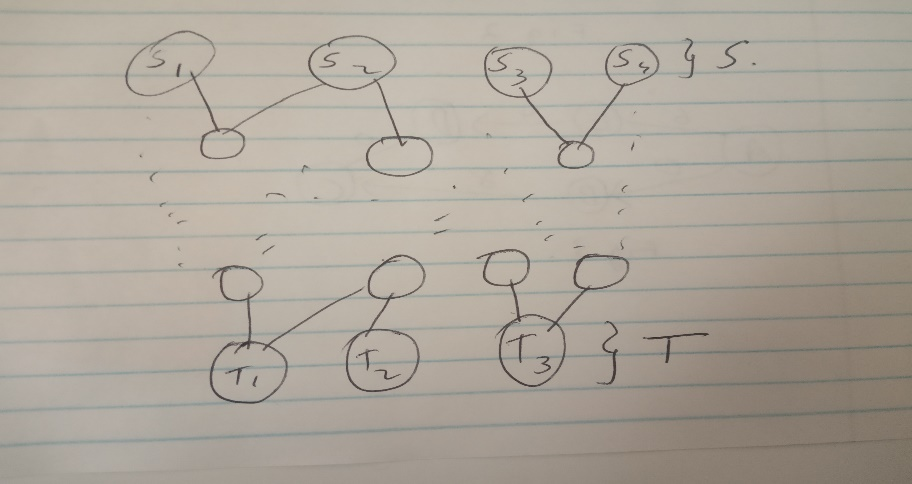 S1 S2 S3 S4 } S.
T1 T2 T3 } T